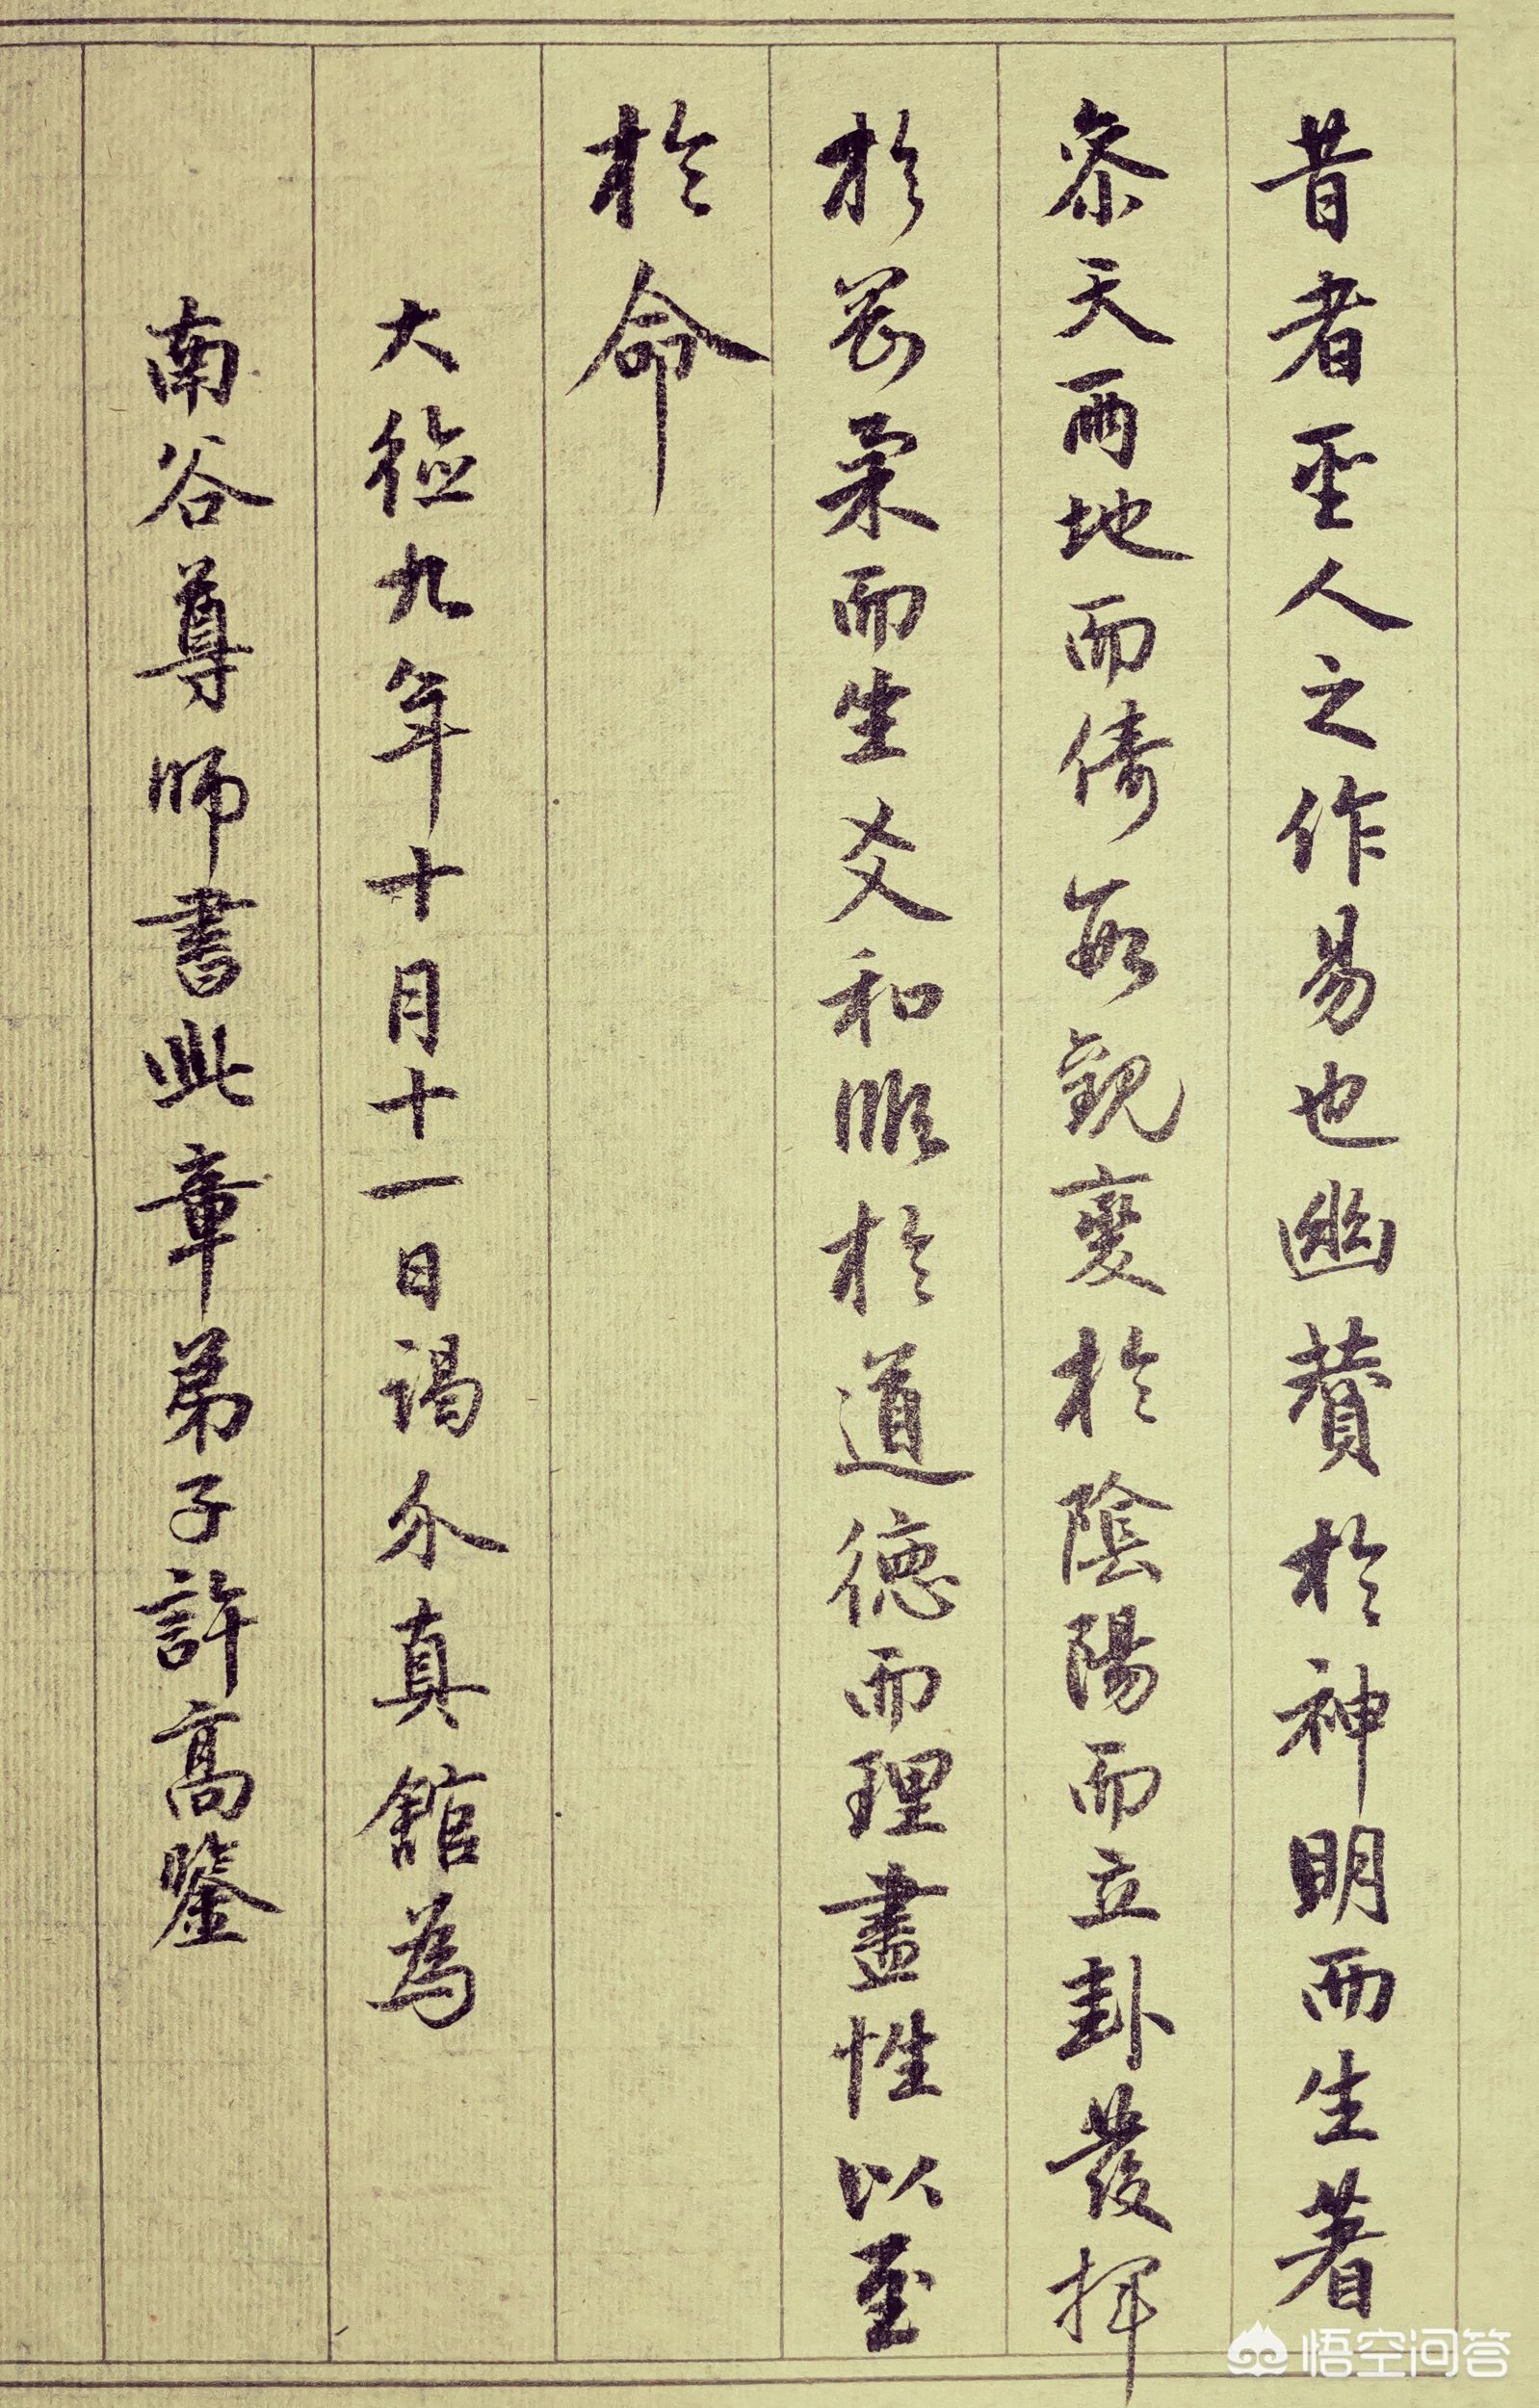 昔者聖人之作易也幽賛於神明而生著
叅天兩地而倚數觀變於陰陽而立卦發揮
於剛柔而生爻和順於道德而理盡性以至
於命
大德九年十月十一日謁介真館為
南谷尊師書此章弟子許高鑒
悟空问答